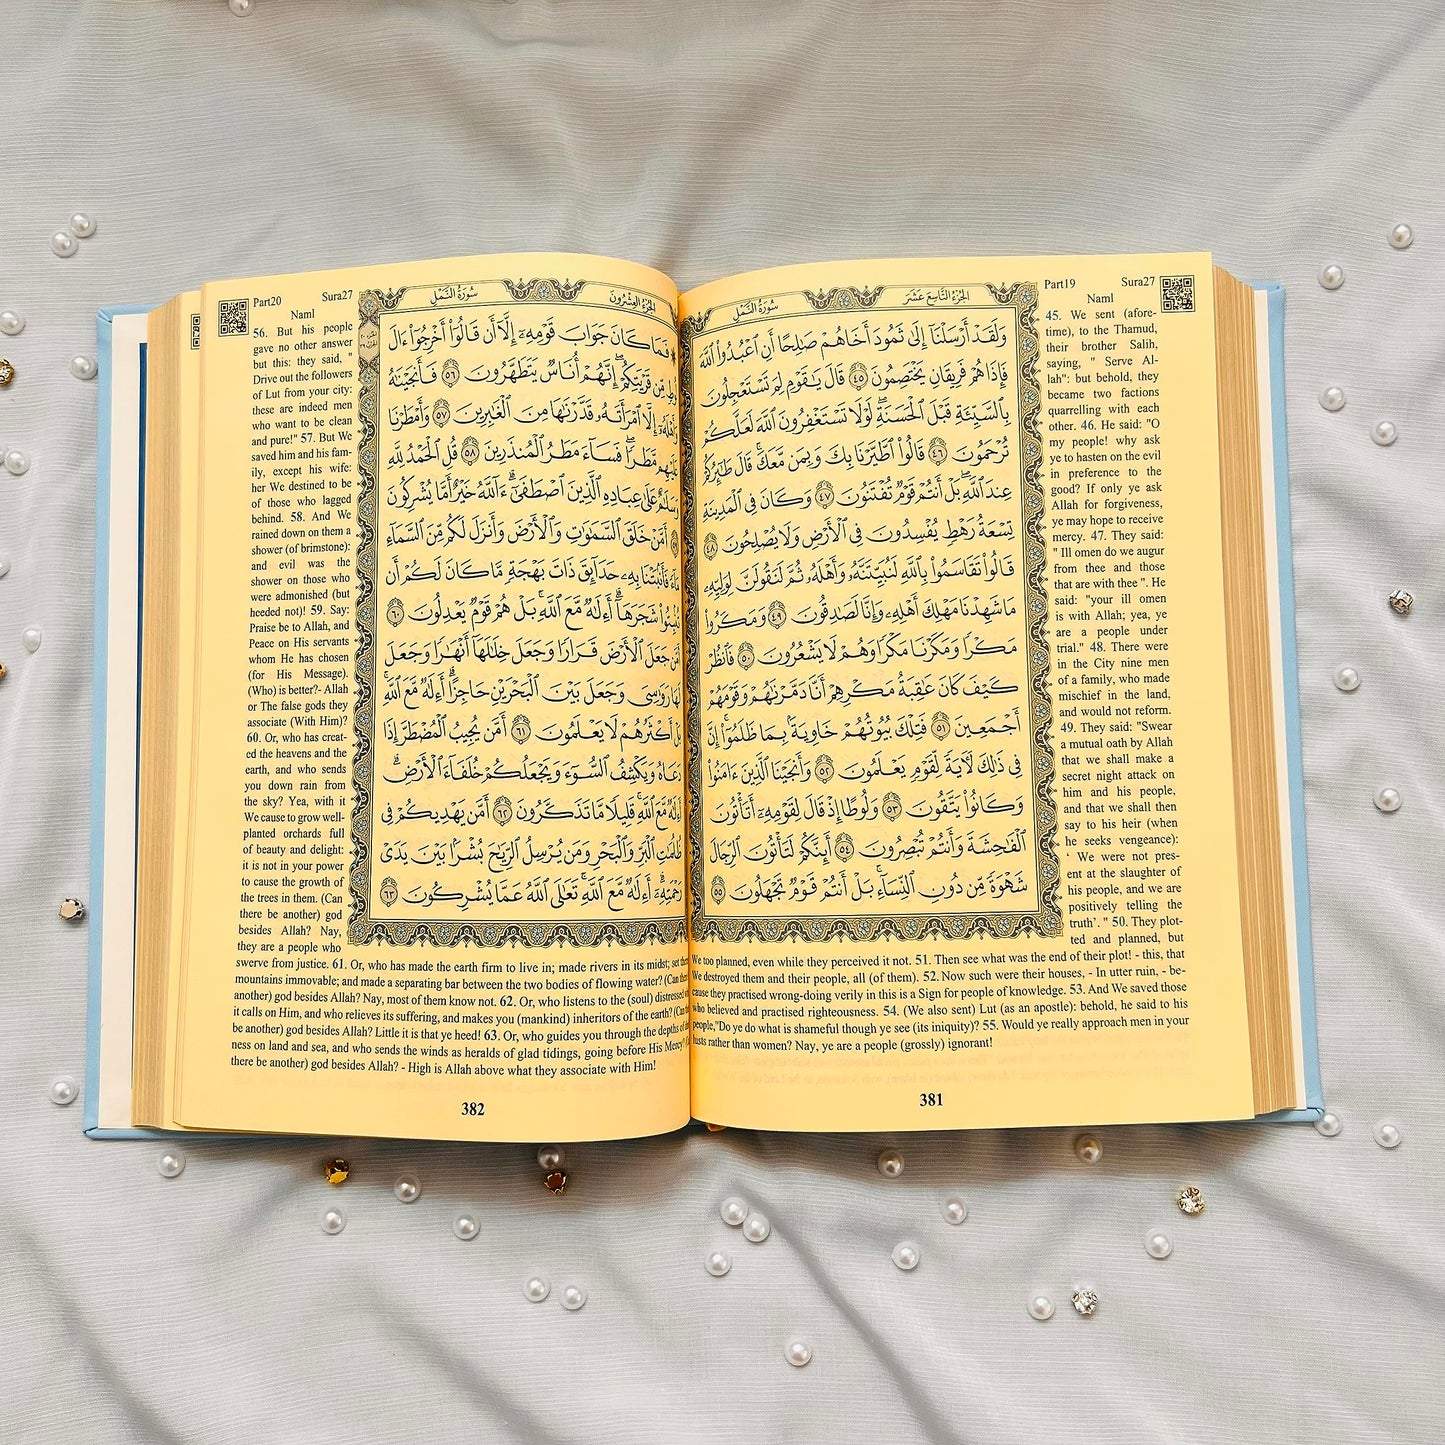 Part19 Sura27
Naml
الجزء التاسع عشر
سورة النمل
وَلَقَدْ أَرْسَلْنَآ إِلَىٰ ثَمُودَ أَخَاهُمْ صَٰلِحًا أَنِ ٱعْبُدُوا۟ ٱللَّهَ
فَإِذَا هُمْ فَرِيقَانِ يَخْتَصِمُونَ ٤٥ قَالَ يَٰقَوْمِ لِمَ تَسْتَعْجِلُونَ
بِٱلسَّيِّئَةِ قَبْلَ ٱلْحَسَنَةِ ۖ لَوْلَا تَسْتَغْفِرُونَ ٱللَّهَ لَعَلَّكُمْ
تُرْحَمُونَ ٤٦ قَالُوا۟ ٱطَّيَّرْنَا بِكَ وَبِمَن مَّعَكَ ۚ قَالَ طَٰٓئِرُكُمْ
عِندَ ٱللَّهِ ۖ بَلْ أَنتُمْ قَوْمٌ تُفْتَنُونَ ٤٧ وَكَانَ فِى ٱلْمَدِينَةِ
تِسْعَةُ رَهْطٍ يُفْسِدُونَ فِى ٱلْأَرْضِ وَلَا يُصْلِحُونَ ٤٨
قَالُوا۟ تَقَاسَمُوا۟ بِٱللَّهِ لَنُبَيِّتَنَّهُۥ وَأَهْلَهُۥ ثُمَّ لَنَقُولَنَّ لِوَلِيِّهِۦ
مَا شَهِدْنَا مَهْلِكَ أَهْلِهِۦ وَإِنَّا لَصَٰدِقُونَ ٤٩ وَمَكَرُوا۟
مَكْرًا وَمَكَرْنَا مَكْرًا وَهُمْ لَا يَشْعُرُونَ ٥٠ فَٱنظُرْ
كَيْفَ كَانَ عَٰقِبَةُ مَكْرِهِمْ أَنَّا دَمَّرْنَٰهُمْ وَقَوْمَهُمْ
أَجْمَعِينَ ٥١ فَتِلْكَ بُيُوتُهُمْ خَاوِيَةًۢ بِمَا ظَلَمُوٓا۟ ۗ إِنَّ
فِى ذَٰلِكَ لَءَايَةً لِّقَوْمٍ يَعْلَمُونَ ٥٢ وَأَنجَيْنَا ٱلَّذِينَ ءَامَنُوا۟
وَكَانُوا۟ يَتَّقُونَ ٥٣ وَلُوطًا إِذْ قَالَ لِقَوْمِهِۦٓ أَتَأْتُونَ
ٱلْفَٰحِشَةَ وَأَنتُمْ تُبْصِرُونَ ٥٤ أَئِنَّكُمْ لَتَأْتُونَ ٱلرِّجَالَ
شَهْوَةً مِّن دُونِ ٱلنِّسَآءِ ۚ بَلْ أَنتُمْ قَوْمٌ تَجْهَلُونَ ٥٥
45. We sent (afore-
time), to the Thamud,
their brother Salih,
saying, " Serve Al-
lah": but behold, they
became two factions
quarrelling with each
other. 46. He said: "O
my people! why ask
ye to hasten on the evil
in preference to the
good? If only ye ask
Allah for forgiveness,
ye may hope to receive
mercy. 47. They said:
" Ill omen do we augur
from thee and those
that are with thee ". He
said: "your ill omen
is with Allah; yea, ye
are a people under
trial." 48. There were
in the City nine men
of a family, who made
mischief in the land,
and would not reform.
49. They said: "Swear
a mutual oath by Allah
that we shall make a
secret night attack on
him and his people,
and that we shall then
say to his heir (when
he seeks vengeance):
‘ We were not pres-
ent at the slaughter of
his people, and we are
positively telling the
truth’. " 50. They plot-
ted and planned, but
We too planned, even while they perceived it not. 51. Then see what was the end of their plot! - this, that
We destroyed them and their people, all (of them). 52. Now such were their houses, - In utter ruin, - be-
cause they practised wrong-doing verily in this is a Sign for people of knowledge. 53. And We saved those
who believed and practised righteousness. 54. (We also sent) Lut (as an apostle): behold, he said to his
people,"Do ye do what is shameful though ye see (its iniquity)? 55. Would ye really approach men in your
lusts rather than women? Nay, ye are a people (grossly) ignorant!
381
Part20 Sura27
Naml
الجزء العشرون
سورة النمل
فَمَا كَانَ جَوَابَ قَوْمِهِۦٓ إِلَّآ أَن قَالُوٓا۟ أَخْرِجُوٓا۟ ءَالَ
لُوطٍ مِّن قَرْيَتِكُمْ ۖ إِنَّهُمْ أُنَاسٌ يَتَطَهَّرُونَ ٥٦ فَأَنجَيْنَٰهُ
وَأَهْلَهُۥٓ إِلَّا ٱمْرَأَتَهُۥ قَدَّرْنَٰهَا مِنَ ٱلْغَٰبِرِينَ ٥٧ وَأَمْطَرْنَا
عَلَيْهِم مَّطَرًا ۖ فَسَآءَ مَطَرُ ٱلْمُنذَرِينَ ٥٨ قُلِ ٱلْحَمْدُ لِلَّهِ
وَسَلَٰمٌ عَلَىٰ عِبَادِهِ ٱلَّذِينَ ٱصْطَفَىٰٓ ۗ ءَآللَّهُ خَيْرٌ أَمَّا يُشْرِكُونَ
٥٩ أَمَّنْ خَلَقَ ٱلسَّمَٰوَٰتِ وَٱلْأَرْضَ وَأَنزَلَ لَكُم مِّنَ ٱلسَّمَآءِ
مَآءً فَأَنۢبَتْنَا بِهِۦ حَدَآئِقَ ذَاتَ بَهْجَةٍ مَّا كَانَ لَكُمْ أَن
تُنۢبِتُوا۟ شَجَرَهَآ ۗ أَءِلَٰهٌ مَّعَ ٱللَّهِ ۚ بَلْ هُمْ قَوْمٌ يَعْدِلُونَ ٦٠
أَمَّن جَعَلَ ٱلْأَرْضَ قَرَارًا وَجَعَلَ خِلَٰلَهَآ أَنْهَٰرًا وَجَعَلَ
لَهَا رَوَٰسِىَ وَجَعَلَ بَيْنَ ٱلْبَحْرَيْنِ حَاجِزًا ۗ أَءِلَٰهٌ مَّعَ ٱللَّهِ ۚ
بَلْ أَكْثَرُهُمْ لَا يَعْلَمُونَ ٦١ أَمَّن يُجِيبُ ٱلْمُضْطَرَّ إِذَا
دَعَاهُ وَيَكْشِفُ ٱلسُّوٓءَ وَيَجْعَلُكُمْ خُلَفَآءَ ٱلْأَرْضِ ۗ
أَءِلَٰهٌ مَّعَ ٱللَّهِ ۚ قَلِيلًا مَّا تَذَكَّرُونَ ٦٢ أَمَّن يَهْدِيكُمْ فِى
ظُلُمَٰتِ ٱلْبَرِّ وَٱلْبَحْرِ وَمَن يُرْسِلُ ٱلرِّيَٰحَ بُشْرًۢا بَيْنَ يَدَىْ
رَحْمَتِهِۦٓ ۗ أَءِلَٰهٌ مَّعَ ٱللَّهِ ۚ تَعَٰلَى ٱللَّهُ عَمَّا يُشْرِكُونَ ٦٣
56. But his people
gave no other answer
but this: they said, "
Drive out the followers
of Lut from your city:
these are indeed men
who want to be clean
and pure!" 57. But We
saved him and his fam-
ily, except his wife:
her We destined to be
of those who lagged
behind. 58. And We
rained down on them a
shower (of brimstone):
and evil was the
shower on those who
were admonished (but
heeded not)! 59. Say:
Praise be to Allah, and
Peace on His servants
whom He has chosen
(for His Message).
(Who) is better?- Allah
or The false gods they
associate (With Him)?
60. Or, who has creat-
ed the heavens and the
earth, and who sends
you down rain from
the sky? Yea, with it
We cause to grow well-
planted orchards full
of beauty and delight:
it is not in your power
to cause the growth of
the trees in them. (Can
there be another) god
besides Allah? Nay,
they are a people who
swerve from justice. 61. Or, who has made the earth firm to live in; made rivers in its midst; set
mountains immovable; and made a separating bar between the two bodies of flowing water? (Can
another) god besides Allah? Nay, most of them know not. 62. Or, who listens to the (soul) distressed
it calls on Him, and who relieves its suffering, and makes you (mankind) inheritors of the earth? (Can
be another) god besides Allah? Little it is that ye heed! 63. Or, who guides you through the depths of
ness on land and sea, and who sends the winds as heralds of glad tidings, going before His Mercy?
there be another) god besides Allah? - High is Allah above what they associate with Him!
382